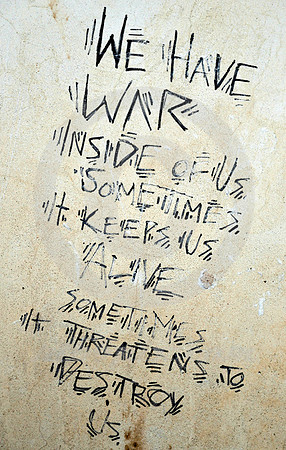 WE HAVE
WAR
INSIDE OF US
SOMETIMES
It KEEPS US
ALIVE
SOMETIMES
It THREATENS TO
DESTROY
US.